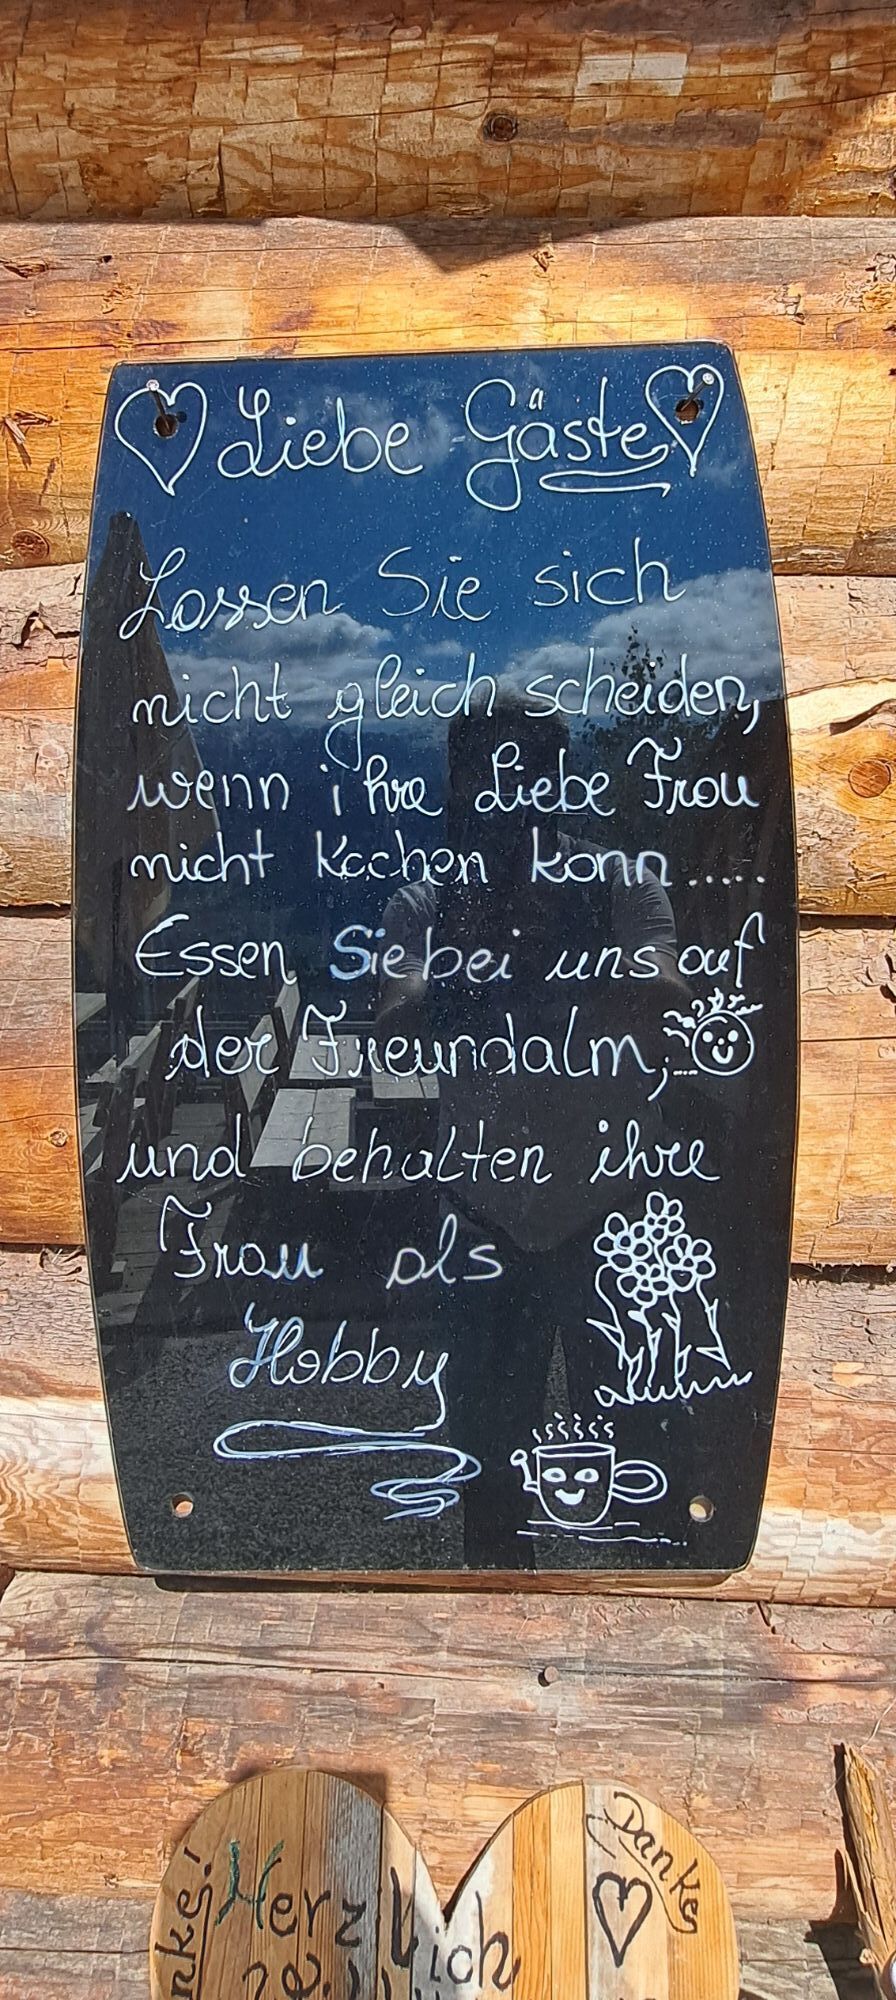 Liebe Gäste
Lassen Sie sich
nicht gleich scheiden,
wenn ihre Liebe Frau
nicht kochen kann.....
Essen Sie bei uns auf
der Freundalm,....
und behalten ihre
Frau als
Hobby
Danke
Herzlich